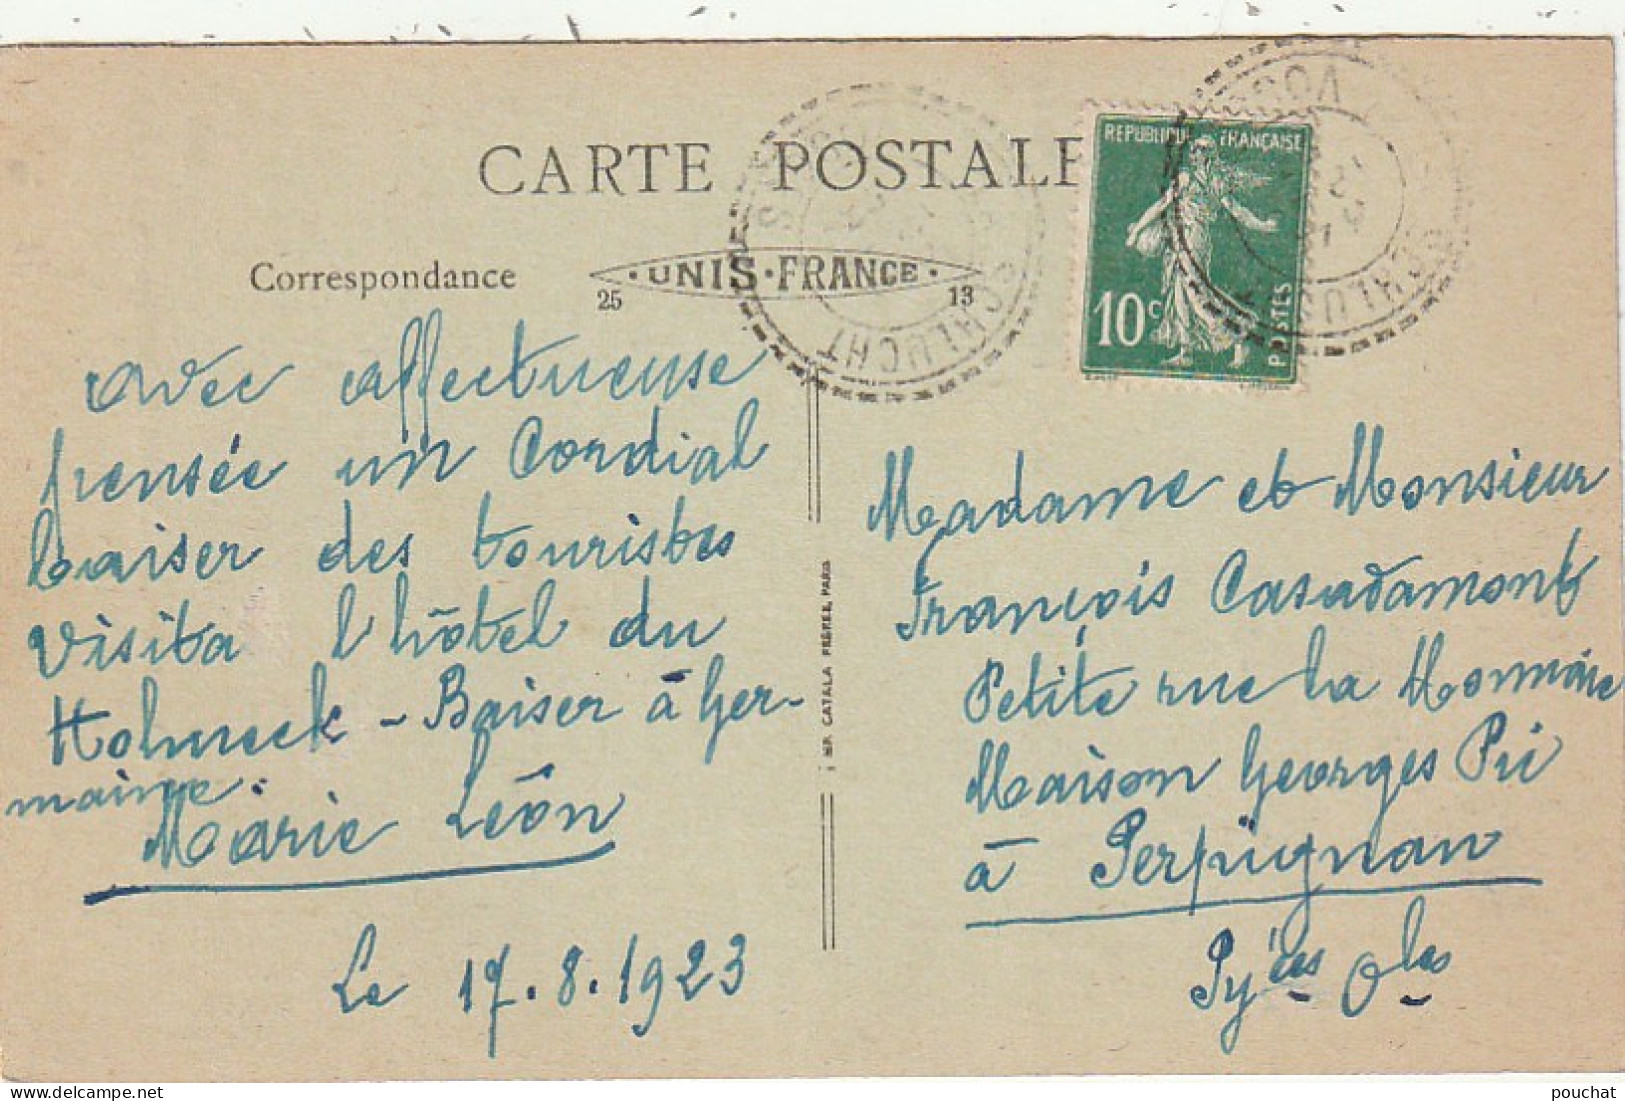 CARTE POSTALE
REPUBLIQUE FRANÇAISE
10c
POSTES
Correspondance
UNIS-FRANCE
25 13
SCHLUCHT
SCHLUCHT
avec affectueuse
pensée un Cordial
baiser des touristes
Visita l'hôtel du
Hohneck - Baiser à Ger-
maine.
Marie Léon
Le 17.8.1923
IMP. CATALA FRERES, PARIS
Madame et Monsieur
François Casadamont
Petite rue la Monnaie
Maison Georges Pri
à Perpignan
Pyées Oles
www.delcampe.net
pouchat